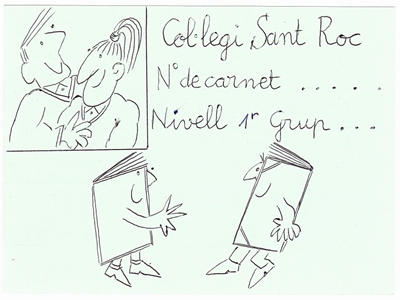 Col·legi Sant Roc
Nº de carnet . . . . . .
Nivell 1r Grup . . .